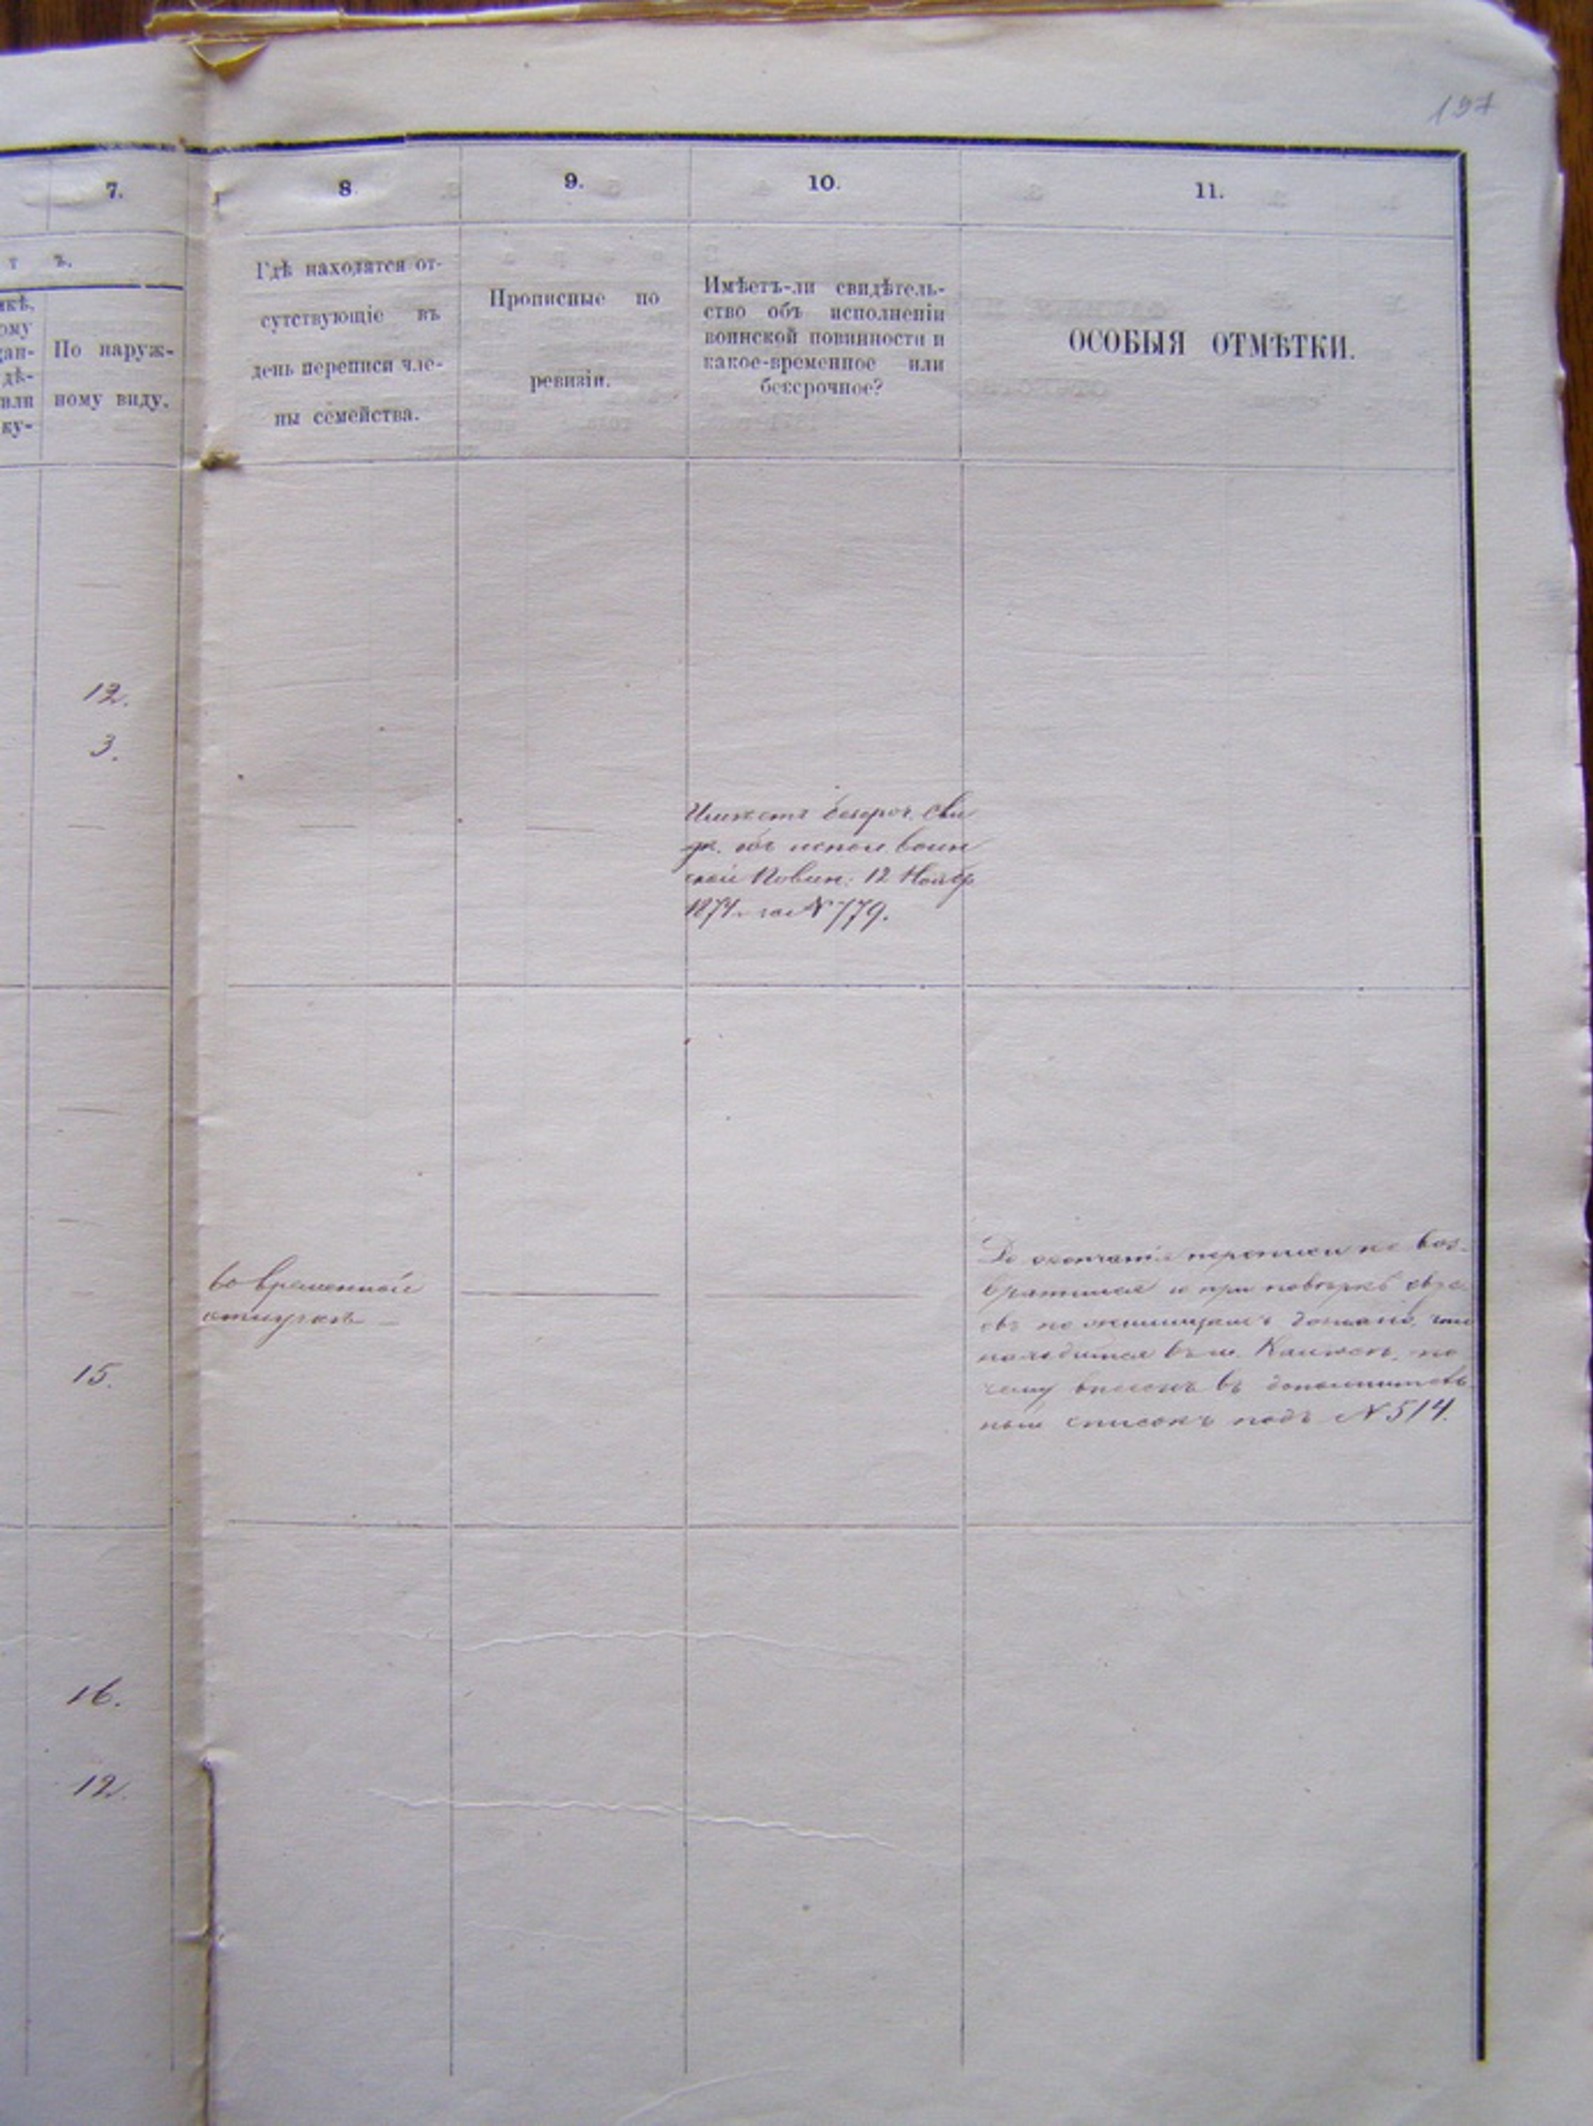 197
7.
8
9.
10.
11.
т ъ.
По наруж-
ному виду.
Гдѣ находятся от-
сутствующіе въ
день переписи чле-
ны семейства.
Прописные по
ревизіи.
Имѣетъ-ли свидѣтель-
ство объ исполненіи
воинской повинности и
какое-временное или
безсрочное?
ОСОБЫЯ ОТМѢТКИ.
12.
3.
Имѣетъ безсроч. сви
дѣ. объ испол. воин
ской Повин: 12 Ноябр
1874 г за № 779.
во временной
отлучкѣ
15.
До окончанія переписи не воз-
вратился и при повѣркѣ евре-
евъ по что
находится въ м. по
чему внесенъ въ дополнитель
ный списокъ подъ № 514.
16.
12.